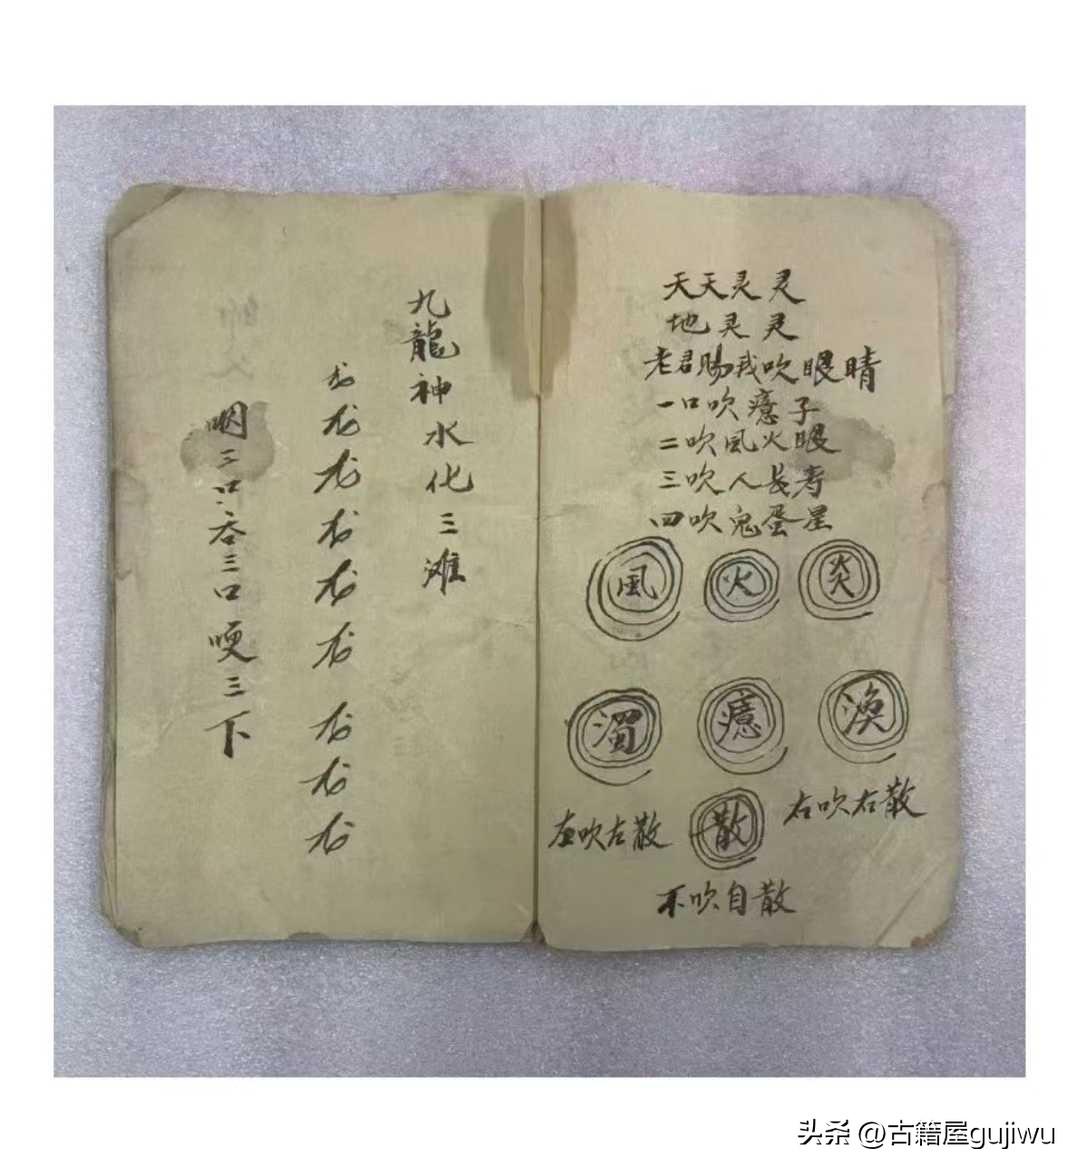 天天灵灵
地灵灵
老君賜我吹眼睛
一口吹癔子
二吹風火眼
三吹人長寿
四吹鬼蛋星
風 火 炎
濁 癔 渙
左吹左散 散 右吹右散
不吹自散
九龍神水化三滩
龙龙龙龙龙龙龙龙龙
咽三口吞三口哽三下
头条 @古籍屋gujiwu